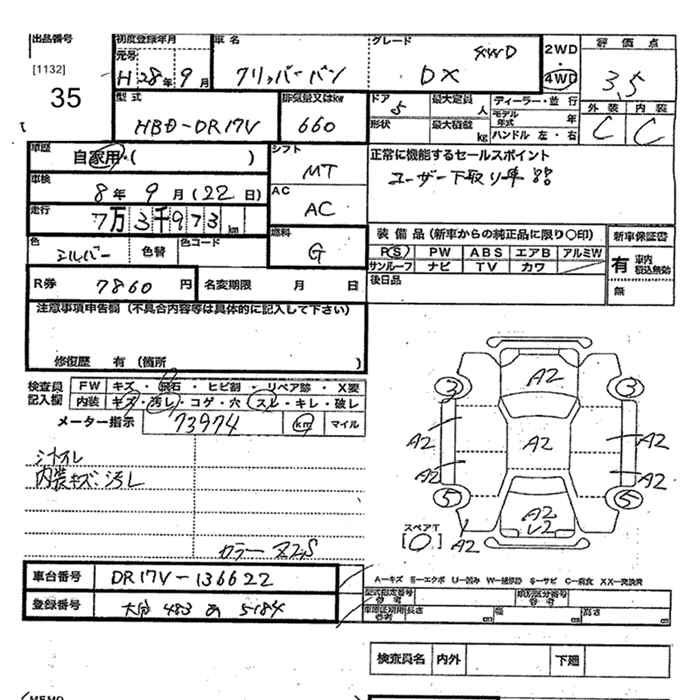 出品番号 初度登録年月 車名 グレード 4WD 2WD 評価点
[1132] 元号 H 28年 9月 クリッパーバン DX 4WD 3.5
35 型式 排気量又はkw ドア 5 最大定員 人 ディーラー・並行 外装 内装
HBD-DR17V 660 形状 最大積載 kg モデル年式 年 C C
ハンドル 左・右
車歴 自家用・( ) シフト MT 正常に機能するセールスポイント
車検 8年 9月(22日) AC AC ユーザー下取り車!!
走行 7万3千973km 燃料 G 装備品(新車からの純正品に限り○印) 新車保証書
色 シルバー 色替 色コード P(S) PW ABS エアB アルミW 有 車内 積込無効
サンルーフ ナビ TV カワ
R券 7860円 名変期限 月 日 後日品 無
注意事項申告欄(不具合内容等は具体的に記入して下さい)
修復歴 有(箇所 )
検査員 FW キズ・飛石・ヒビ割・リペア跡・X要
記入欄 内装 キズ・汚レ・コゲ・穴・スレ・キレ・破レ
メーター指示 73974 km マイル
3 A2 3
A2 A2 A2
A2 A2
内装キズ汚レ
5 A2 5
スペアT
[0] A2
カラー Z2S
車台番号 DR17V-136622
登録番号 大分 483 あ 5184
A-キズ E-エクボ U-凹み W-補修跡 S-サビ C-腐食 XX-交換済
型式指定番号 参考 類別区分番号 参考
車庫証明用 参考 長さ cm 幅 cm 高さ cm
検査員名 内外 下廻
MEMO